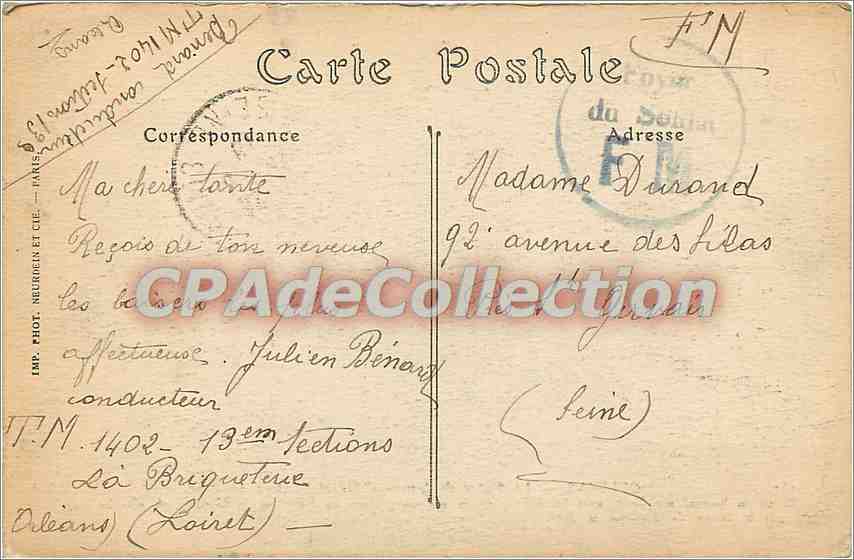 Bénard conducteur
T M 1402 - Section 13e
Orléans
F M
Carte Postale
Foyer
du Soldat
F M
Correspondance
Adresse
Ma chere tante
Reçois de ton neveuse
les baisers
affectueuse. Julien Bénard
conducteur
T.M. 1402 - 13em Sections
Là Briqueterie
Orléans (Loiret) —
Madame Durand
92 avenue des Lilas
Près St Gervais
(Seine)
CPAdeCollection.com
IMP. PHOT. NEURDEIN ET CIE. — PARIS